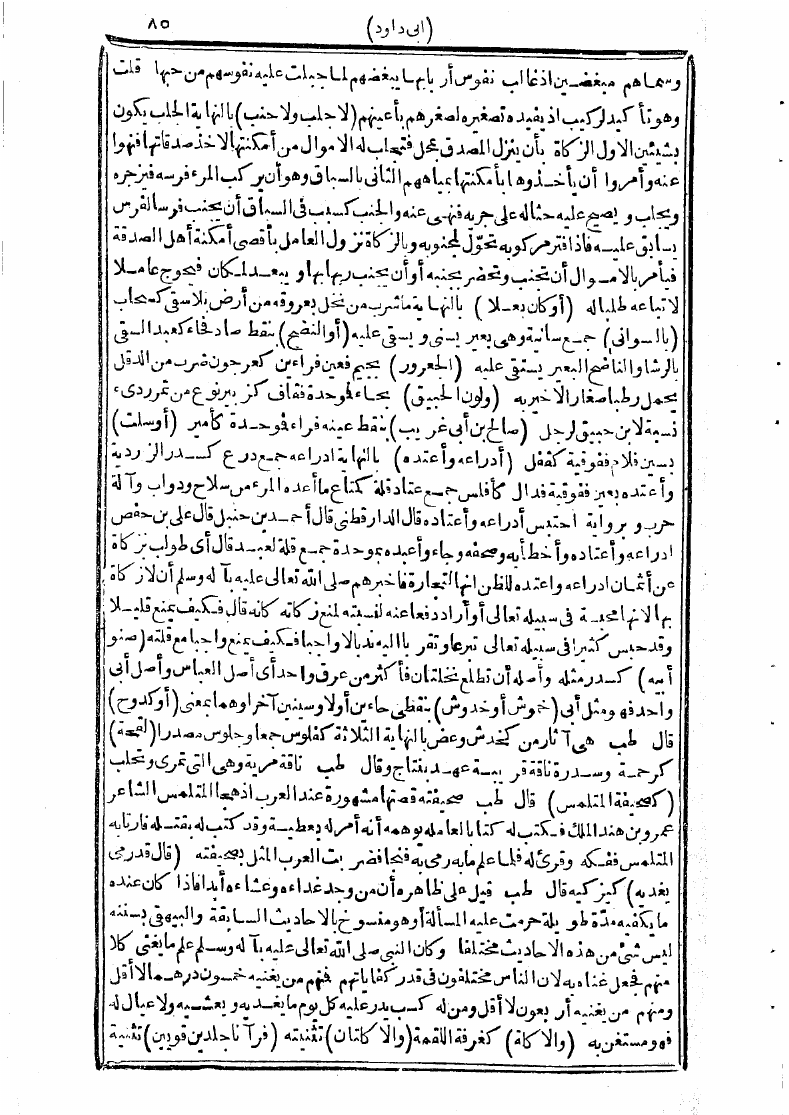 (ابى داود) ٨٥
وسماهم مبغضين اذ غالب نفوس أربابها ببغضهم لما جبلت عليه نفوسهم من حبها قلت
وهو تأكيد لركيب اذ يفيده تصغيره لصغرهم بأعينهم (لا جلب ولا جنب) بالنهاية الجلب يكون
بشيئين الاول الزكاة بأن ينزل المصدق بمحل فتجلب له الاموال من أمكنتها لاخذ صدقاتها فنهوا
عنه وأمروا أن يأخذوها بأمكنتها بمياههم الثانى بالسباق وهو أن يركب المرء فرسه فيزجره
ويجلب ويصيح عليه حثا له على جريه فنهى عنه والجنب كسبب فى السباق أن يجنب فرسا لفرس
يسابق عليه فاذا فتر مركوبه تحول لمجنوبه وبالزكاة نزول العامل بأقصى أمكنة أهل الصدقة
فيأمر بالاموال أن تجنب وتحضر بجنبه أو أن يجنب ربها بها ويبعد لمكان فيحوج عاملا
لاتباعه طلبا له (أو كان بعلا) بالنهاية ما شرب من نخل بعروقه من أرض بلا سقى كسحاب
(بالسوانى) جمع سانية وهى بعير يسنى ويسقى عليه (أو النضح) بنقط صاد فحاء كعبد السقى
بالرشا والناضح البعير يستقى عليه (الجعرور) بجيم فعين فراءين كعرجون ضرب من الدقل
يحمل رطبا صغارا لا خير به (ولون الحبيق) بحاء فموحدة فقاف كزبير نوع من تمر ردىء
نسبة لابن حبيق لرجل (صالح بن أبى غريب) بنقط عينه فراء فموحدة كأمير (أو سلت)
بسين فلام ففوقية كقفل (أدراعه وأعتده) بالنهاية ادراعه جمع درع كسدر الزردية
وأعتده بعين ففوقية فدال كأفلس جمع عتاد قلة كمتاع ما أعده المرء من سلاح ودواب وآلة
حرب وبرواية احتبس أدراعه وأعتاده قال الدارقطنى قال أحمد بن حنبل قال على بن حفص
ادراعه وأعتاده وأخطأ به وصحفه وجاء وأعبده بموحدة جمع قلة لعبد قال أى طولب بزكاة
عن أثمان ادراعه واعتده للظن انها للتجارة فاخبرهم صلى الله تعالى عليه بآله وسلم أن لا زكاة
بها لانها محبسة فى سبيله تعالى أو أراد دفعا عنه لنسبته لمنع زكاته كانه قال فكيف يمنع قليلا
وقد حبس كثيرا فى سبيله تعالى تبرعا وتقربا اليه ندبا لا واجبا فكيف يمنع واجبا مع قلته (صنو
أبيه) كسدر مثله وأصله أن تطلع نخلتان فأكثر من عرق واحد أى أصل العباس وأصل أبى
واحد فهو مثل أبى (خموش أو خدوش) بنقطى خاءين أولا وسينين آخرا وهما بمعنى (أو كدوح)
قال طب هى آثار من كخدش وعض بالنهاية الثلاثة كفلوس جمعا وجلوس مصدرا (القمحة)
كرحمة وسدرة ناقة قريبة عهد بنتاج وقال طب ناقة مرية وهى التى تمرى وتحلب
(كصحيفة المتلمس) قال طب صحيفته قصتها مشهورة عند العرب اذ هجا المتلمس الشاعر
عمرو بن هند الملك فكتب له كتابا لعامله يوهمه أنه أمر له بعطية وقد كتب له بقتله فارتابه
المتلمس ففكه وقرئ له فلما علم ما به رمى به فنجا فضربت العرب المثل بصحيفته (قال قدر مى
يغديه) كيزكيه قال طب قيل على ظاهره أن من وجد غداءه وعشاءه أبدا فاذا كان عنده
ما يكفيه مدة طويلة حرمت عليه المسألة أو هو منسوخ بالاحاديث السابقة والبيهقى بسننه
ليس شئ من هذه الاحاديث مختلفا وكان النبى صلى الله تعالى عليه بآله وسلم علم ما يغنى كلا
منهم فجعل غناه به لان الناس مختلفون فى قدر كفاياتهم فمنهم من يغنيه خمسون درهما لا أقل
ومنهم من يغنيه أربعون لا أقل ومن له كسب يدر عليه كل يوم ما يغديه ويعشيه ولا عيال له
فهو مستغن به (والاكلة) كغرفة اللقمة (والاكلتان) تثنيته (فرآنا جلدين قويين) تثنية